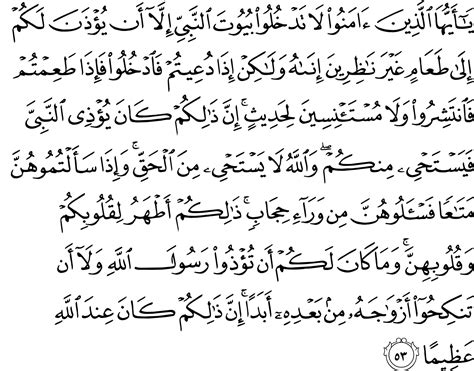 يَـٰٓأَيُّهَا ٱلَّذِينَ ءَامَنُوا۟ لَا تَدْخُلُوا۟ بُيُوتَ ٱلنَّبِىِّ إِلَّآ أَن يُؤْذَنَ لَكُمْ
إِلَىٰ طَعَامٍ غَيْرَ نَـٰظِرِينَ إِنَىٰهُ وَلَـٰكِنْ إِذَا دُعِيتُمْ فَٱدْخُلُوا۟ فَإِذَا طَعِمْتُمْ
فَٱنتَشِرُوا۟ وَلَا مُسْتَـْٔنِسِينَ لِحَدِيثٍ ۚ إِنَّ ذَٰلِكُمْ كَانَ يُؤْذِى ٱلنَّبِىَّ
فَيَسْتَحْىِۦ مِنكُمْ ۖ وَٱللَّهُ لَا يَسْتَحْىِۦ مِنَ ٱلْحَقِّ ۚ وَإِذَا سَأَلْتُمُوهُنَّ
مَتَـٰعًا فَسْـَٔلُوهُنَّ مِن وَرَآءِ حِجَابٍ ۚ ذَٰلِكُمْ أَطْهَرُ لِقُلُوبِكُمْ
وَقُلُوبِهِنَّ ۚ وَمَا كَانَ لَكُمْ أَن تُؤْذُوا۟ رَسُولَ ٱللَّهِ وَلَآ أَن
تَنكِحُوٓا۟ أَزْوَٰجَهُۥ مِنۢ بَعْدِهِۦٓ أَبَدًا ۚ إِنَّ ذَٰلِكُمْ كَانَ عِندَ ٱللَّهِ
عَظِيمًا ٥٣